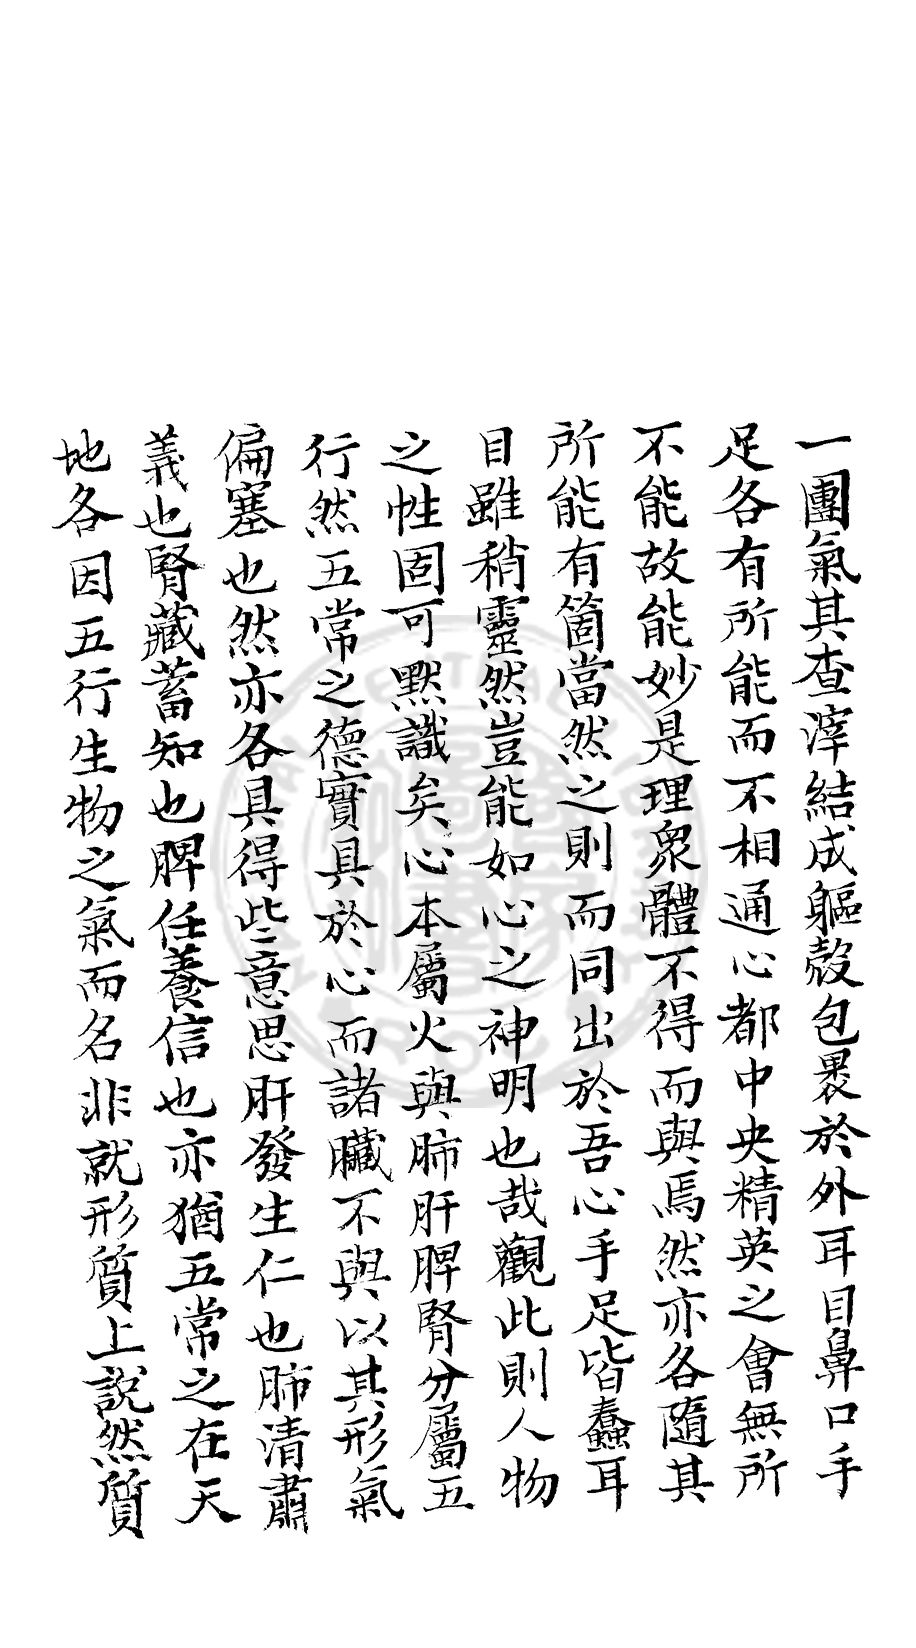 一團氣其查滓結成軀殼包裹於外耳目鼻口手
足各有所能而不相通心都中央精英之會無所
不能故能妙是理衆體不得而與焉然亦各隨其
所能有箇當然之則而同出於吾心手足皆蠢耳
目雖稍靈然豈能如心之神明也哉觀此則人物
之性固可默識矣心本屬火與肺肝脾腎分屬五
行然五常之德實具於心而諸臟不與以其形氣
偏塞也然亦各具得些意思肝發生仁也肺清肅
義也腎藏蓄知也脾任養信也亦猶五常之在天
地各因五行生物之氣而名非就形質上說然質